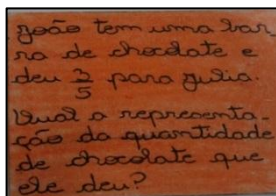 João tem uma bar
ra de chocolate e
deu 3/5 para Julia.
Qual a representa-
ção da quantidade
de chocolate que
ele deu?